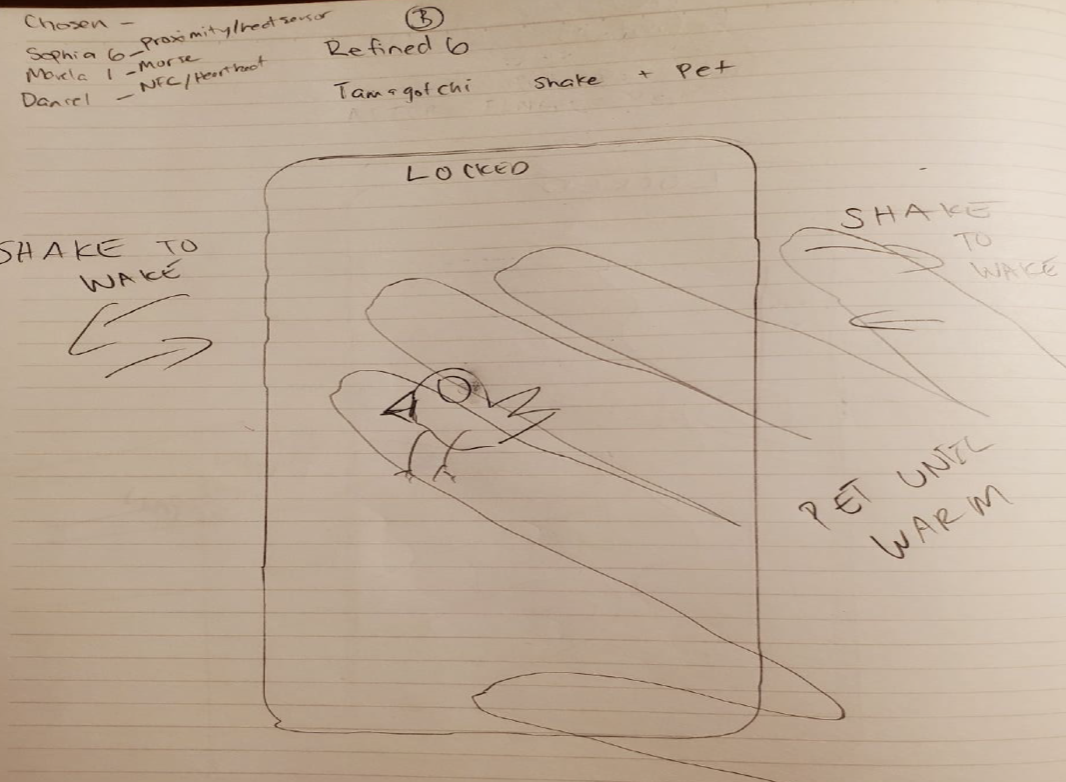 Chosen -
Sophia 6 - Proximity/heat sensor
1 - Morse
Daniel - NFC/Heartbeat
B
Refined 6
Tamagotchi shake + Pet
LOCKED
SHAKE TO
WAKE
SHAKE
TO
WAKE
PET UNTIL
WARM